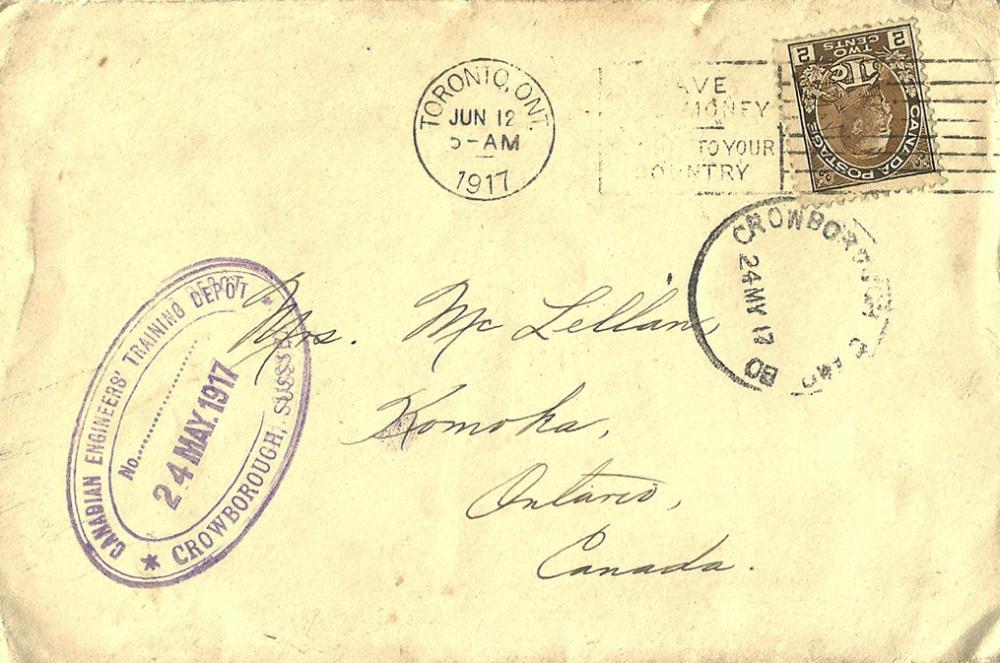 TORONTO, ONT.
JUN 12
5-AM
1917
MONEY
TO YOUR
COUNTRY
2 TWO CENTS 2
CANADA POSTAGE
CROWBOROUGH
24 MY 17
CANADIAN ENGINEERS' TRAINING DEPOT
No.
24 MAY. 1917
* CROWBOROUGH, SUSSEX
Mrs. Mc Lellan
Komoka,
Ontario,
Canada.